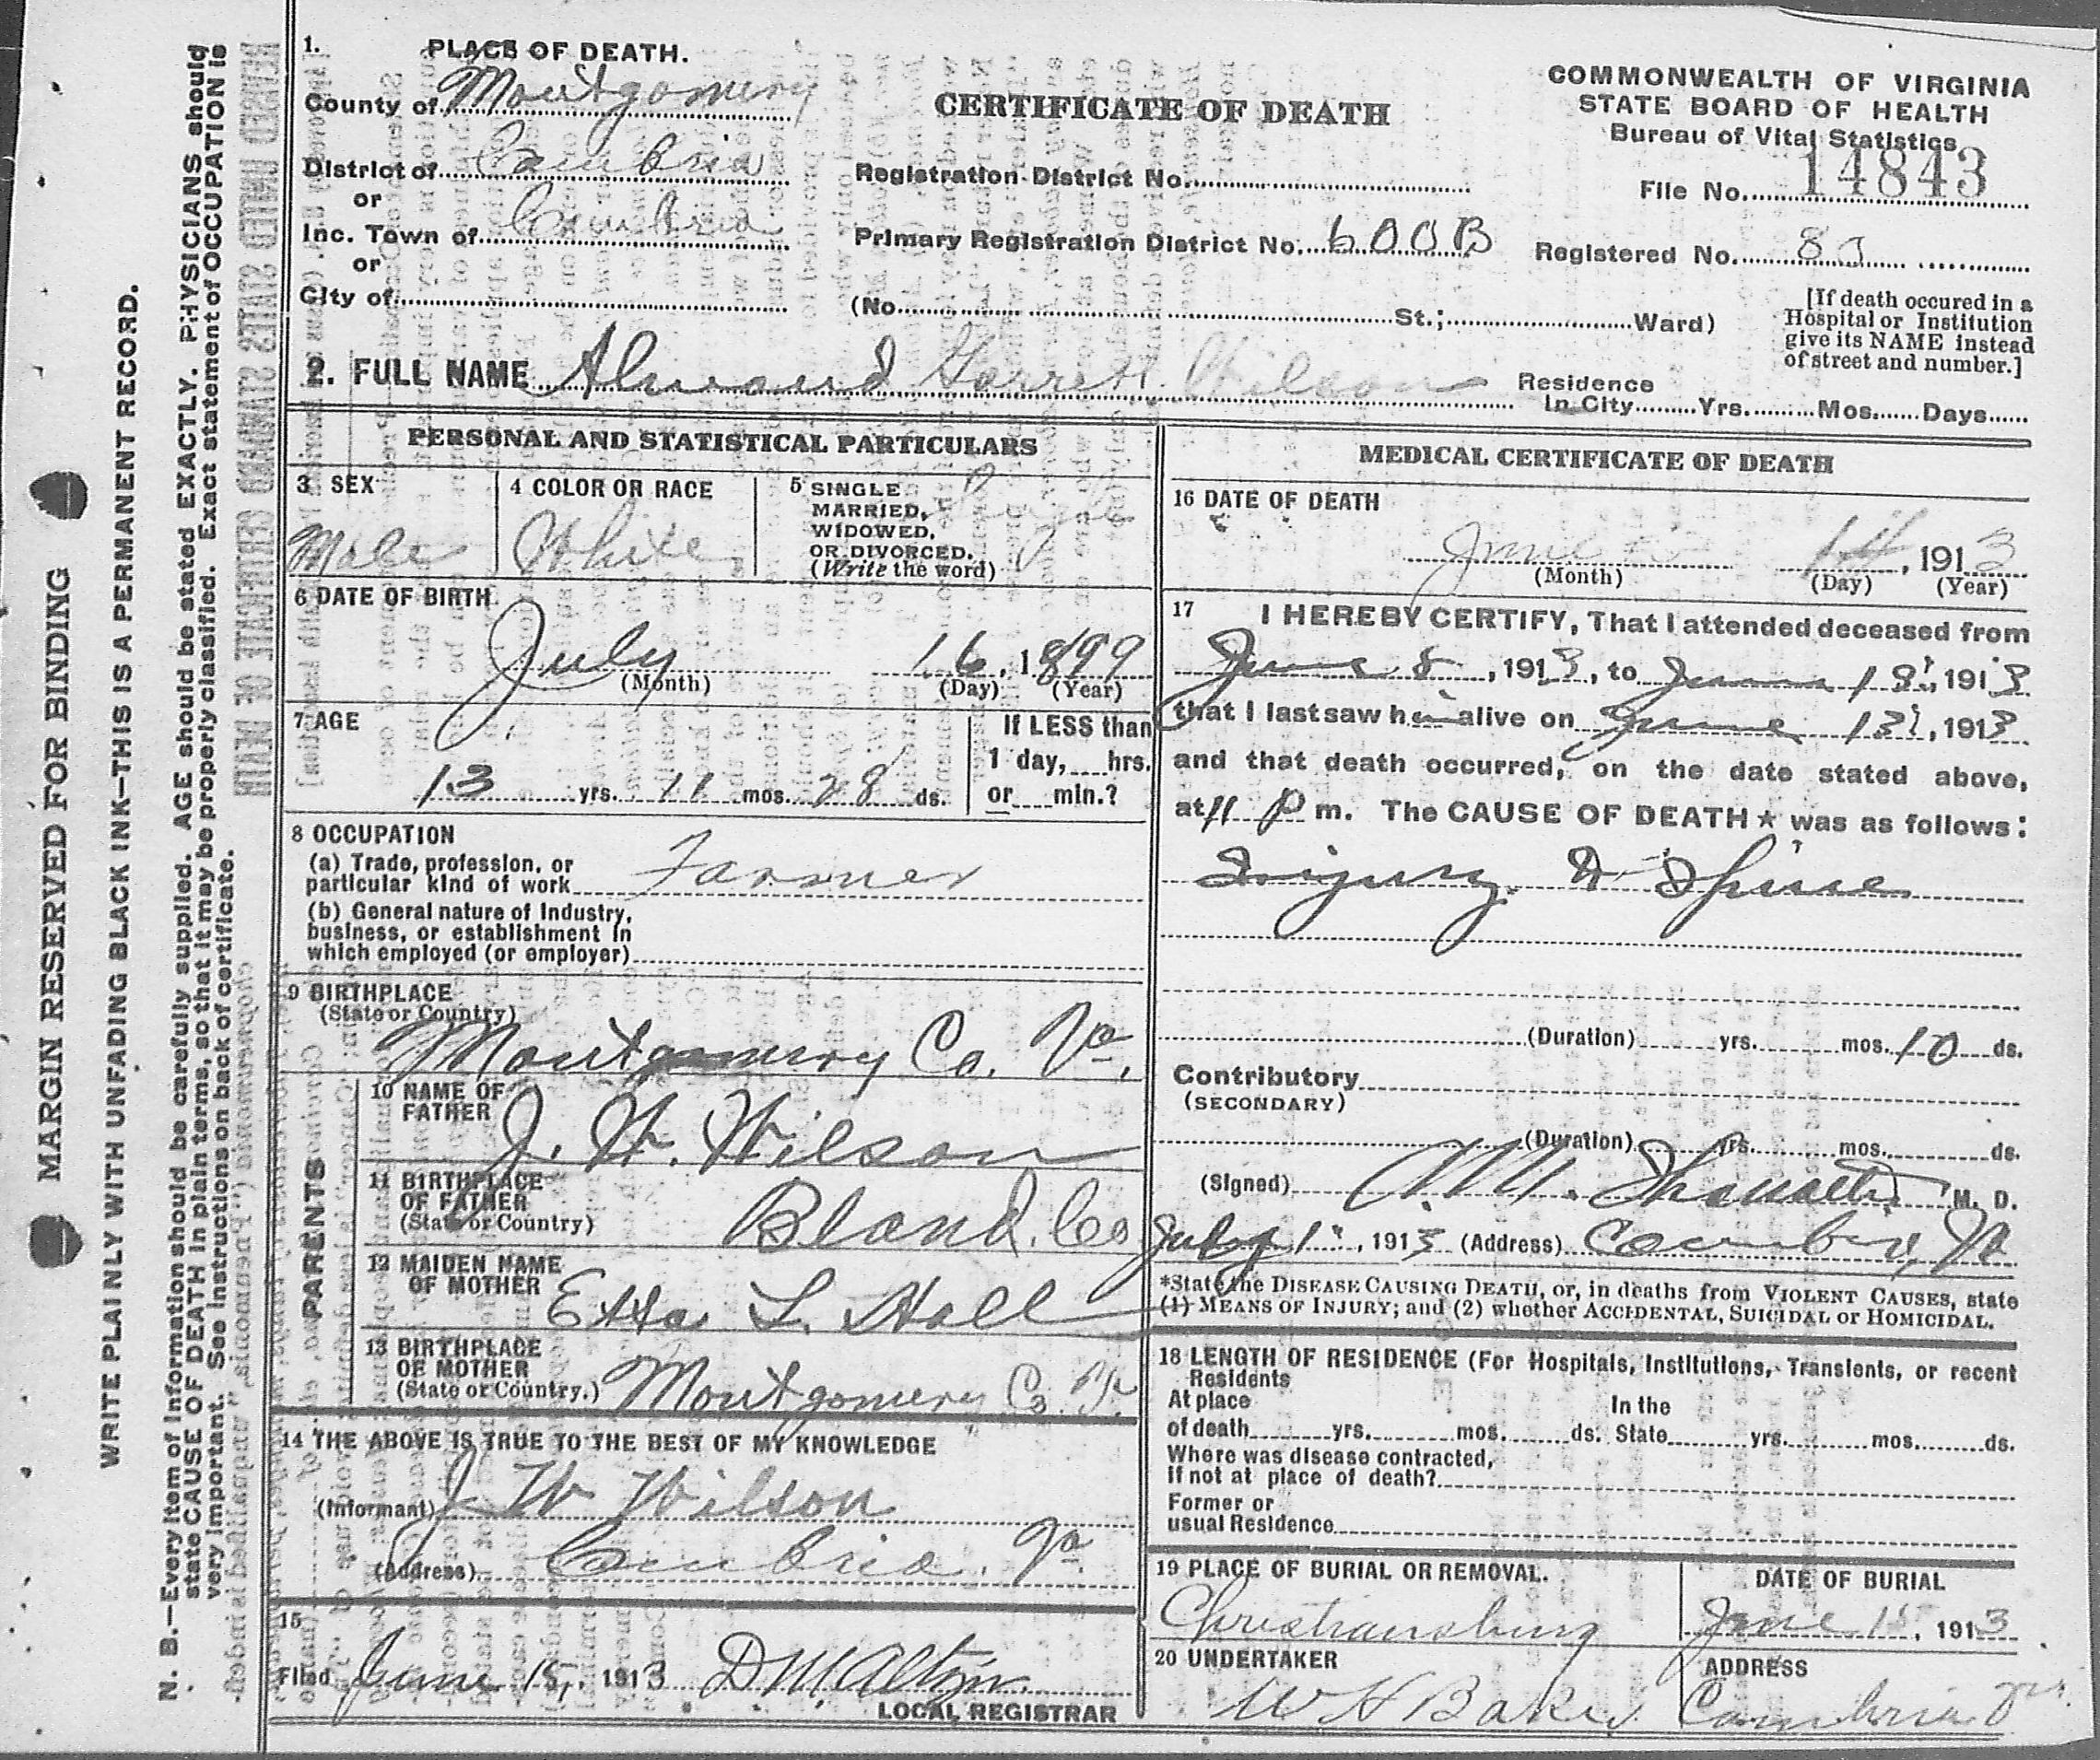 MARGIN RESERVED FOR BINDING
WRITE PLAINLY WITH UNFADING BLACK INK—THIS IS A PERMANENT RECORD.
N. B.—Every item of information should be carefully supplied. AGE should be stated EXACTLY. PHYSICIANS should
state CAUSE OF DEATH in plain terms, so that it may be properly classified. Exact statement of OCCUPATION is
very important. See instructions on back of certificate.
1. PLACE OF DEATH.
County of Montgomery
District of Cambria
or
Inc. Town of Cambria
or
City of
CERTIFICATE OF DEATH
Registration District No.
Primary Registration District No. 600B
(No. St.; Ward)
COMMONWEALTH OF VIRGINIA
STATE BOARD OF HEALTH
Bureau of Vital Statistics
File No. 14843
Registered No.
[If death occured in a
Hospital or Institution
give its NAME instead
of street and number.]
2. FULL NAME Garrett Wilson
Residence
In City Yrs. Mos. Days
PERSONAL AND STATISTICAL PARTICULARS
3 SEX
Male
4 COLOR OR RACE
White
5 SINGLE.
MARRIED,
WIDOWED,
OR DIVORCED.
(Write the word)
Single
6 DATE OF BIRTH
July 16, 1899
(Month) (Day) (Year)
7 AGE
13 yrs. 11 mos. 28 ds.
If LESS than
1 day, hrs.
or min.?
8 OCCUPATION
(a) Trade, profession, or
particular kind of work Farmer
(b) General nature of Industry,
business, or establishment in
which employed (or employer)
9 BIRTHPLACE
(State or Country)
Montgomery Co. Va.
PARENTS
10 NAME OF
FATHER J. W. Wilson
11 BIRTHPLACE
OF FATHER
(State or Country) Bland. Co
12 MAIDEN NAME
OF MOTHER Etta L. Hall
13 BIRTHPLACE
OF MOTHER
(State or Country.) Montgomery Co. Va.
14 THE ABOVE IS TRUE TO THE BEST OF MY KNOWLEDGE
(Informant) J W Wilson
(Address) Cambria. Va
15
Filed June 15, 1913 D M
LOCAL REGISTRAR
MEDICAL CERTIFICATE OF DEATH
16 DATE OF DEATH
June 14, 1913
(Month) (Day) (Year)
17 I HEREBY CERTIFY, That I attended deceased from
June 5, 1913, to June 13, 1913
that I last saw him alive on June 13, 1913
and that death occurred, on the date stated above,
at 11 P m. The CAUSE OF DEATH * was as follows:
Injury to Spine
(Duration) yrs. mos. 10 ds.
Contributory
(SECONDARY)
(Duration) yrs. mos. ds.
(Signed) M. D.
July 1, 1913 (Address) Cambria, Va
*State the DISEASE CAUSING DEATH, or, in deaths from VIOLENT CAUSES, state
(1) MEANS OF INJURY; and (2) whether ACCIDENTAL, SUICIDAL or HOMICIDAL.
18 LENGTH OF RESIDENCE (For Hospitals, Institutions, Transients, or recent
Residents
At place In the
of death yrs. mos. ds. State yrs. mos. ds.
Where was disease contracted,
if not at place of death?
Former or
usual Residence
19 PLACE OF BURIAL OR REMOVAL.
Christiansburg
DATE OF BURIAL
June 15, 1913
20 UNDERTAKER
W H Baker
ADDRESS
Cambria Va.